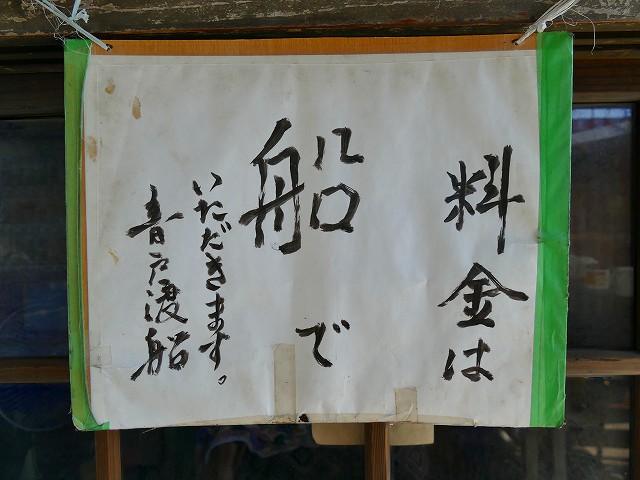 料金は
船で
いただきます。
音戸渡船